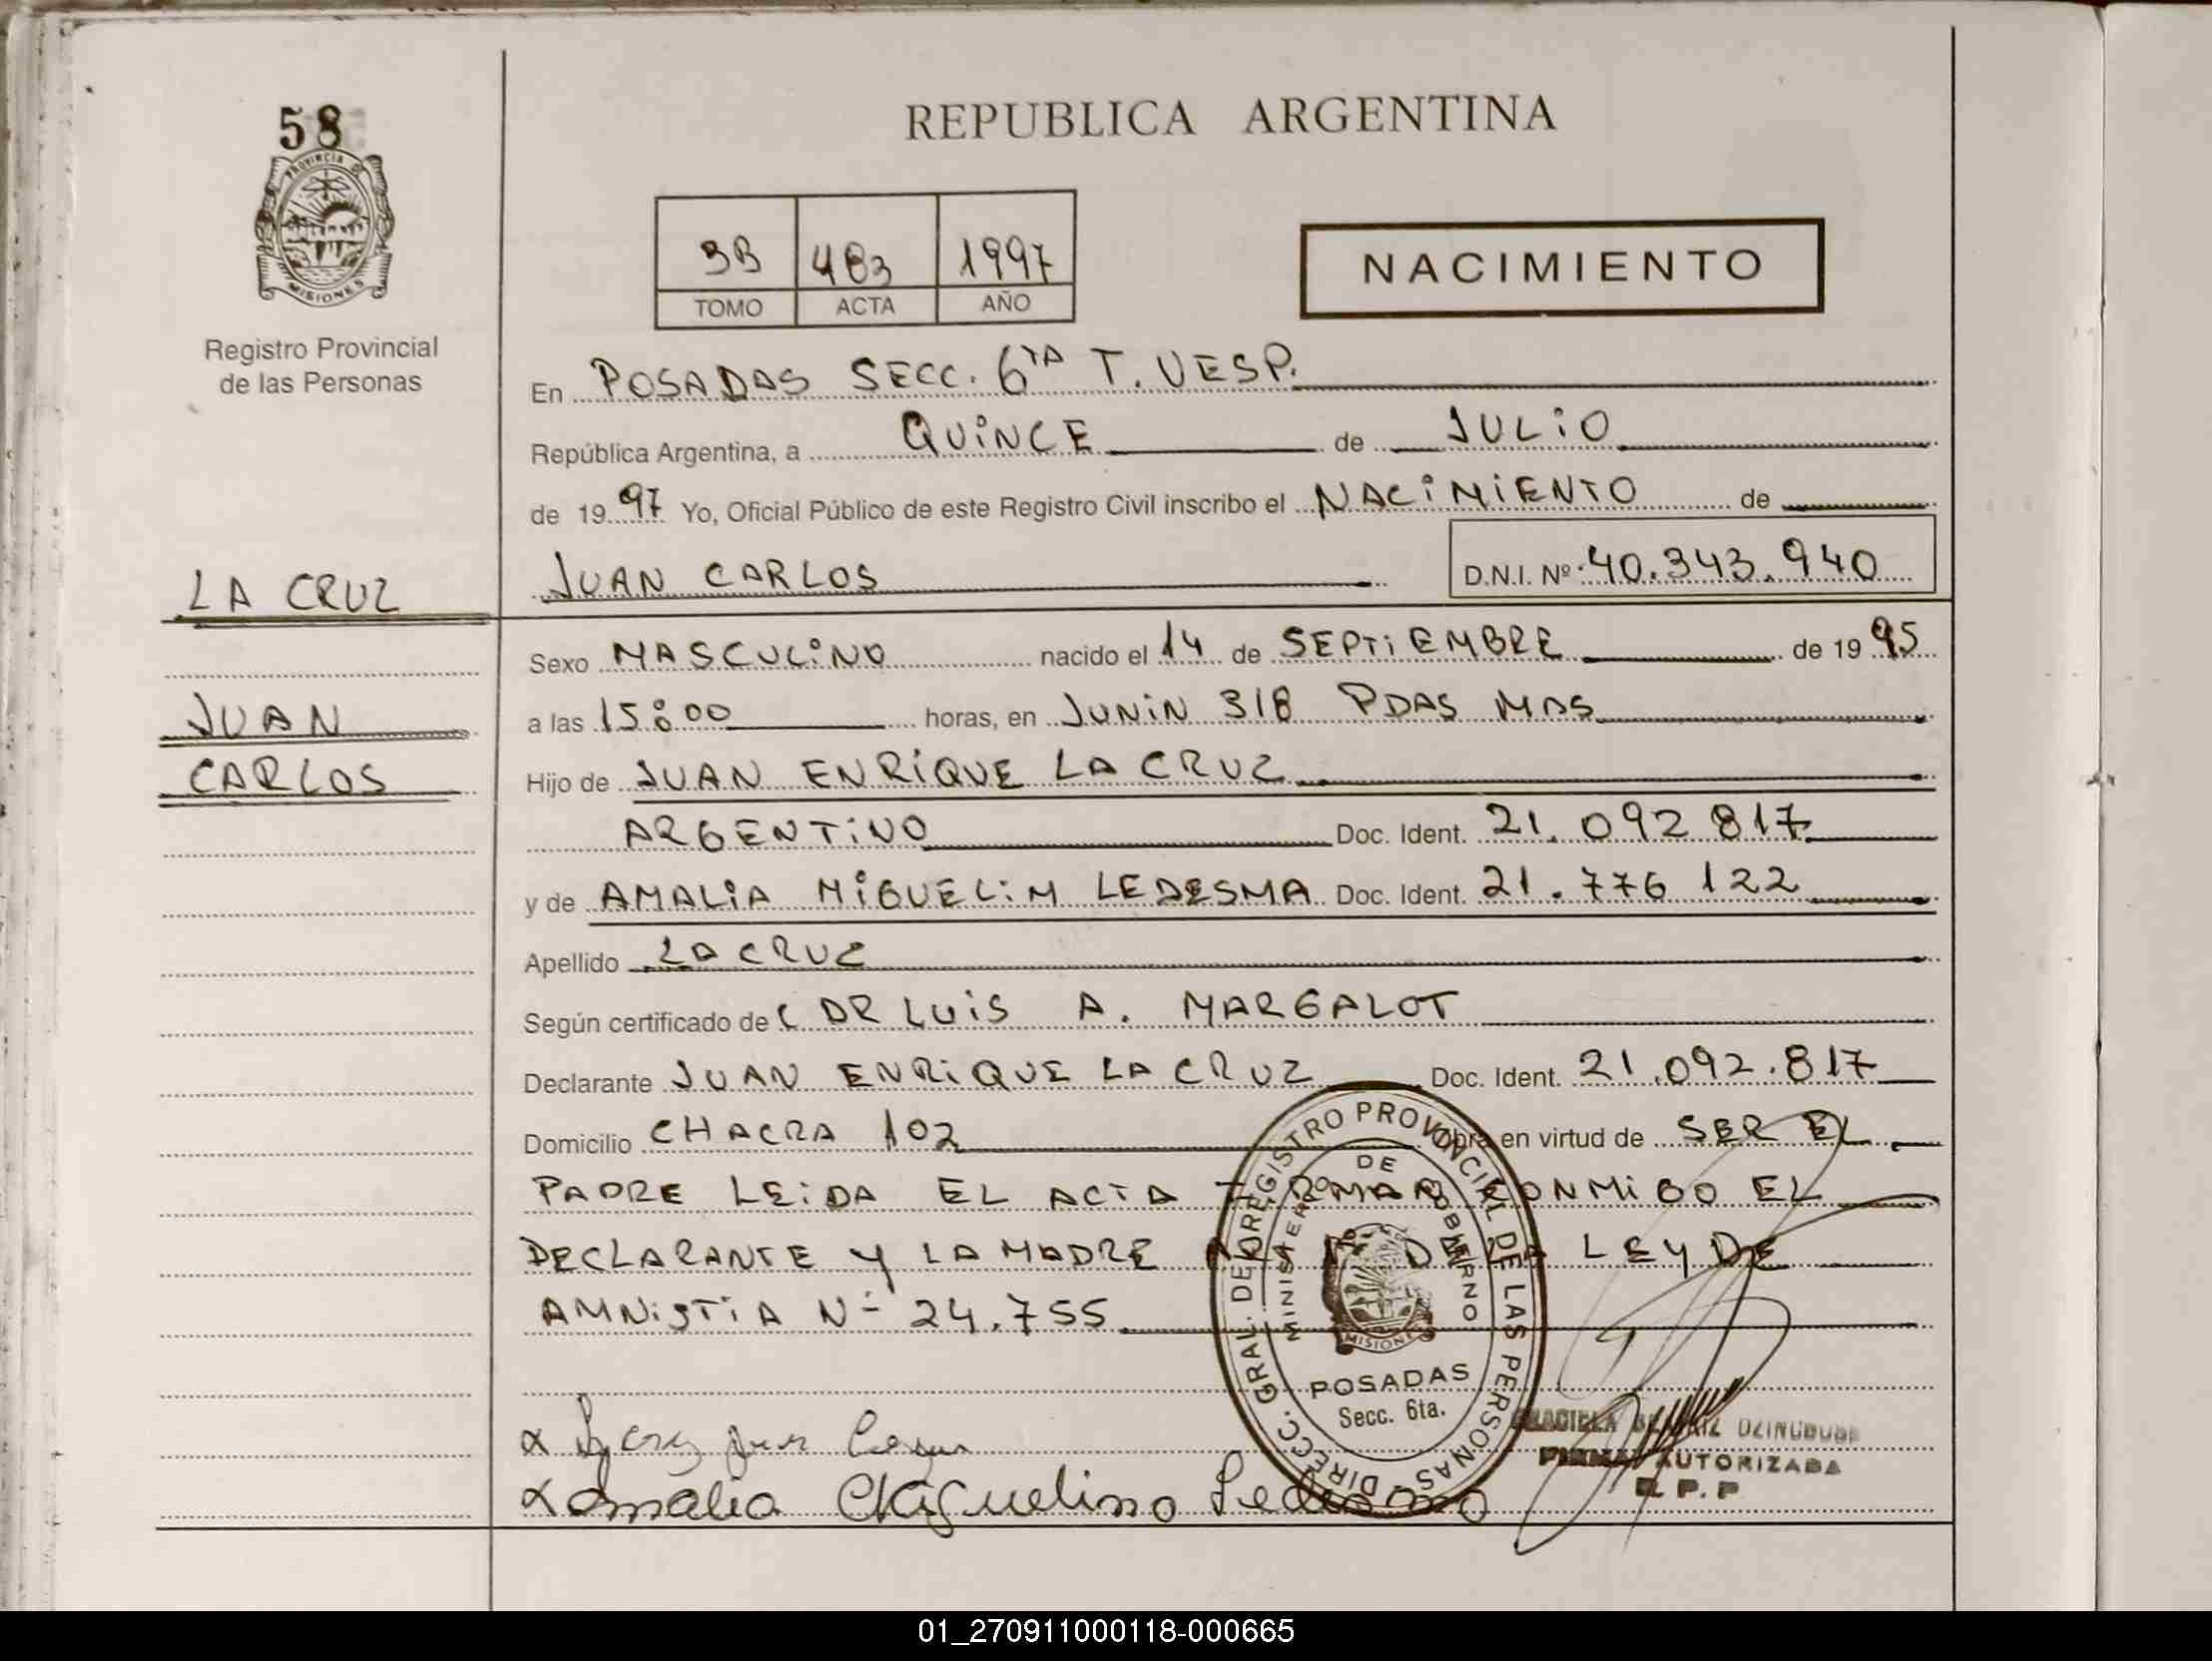 58
PROVINCIA DE
MISIONES
Registro Provincial
de las Personas
REPUBLICA ARGENTINA
3B 483 1997
TOMO ACTA AÑO
NACIMIENTO
En POSADAS SECC. 6TA T. VESP.
República Argentina, a QUiNCE de JULiO
de 1997 Yo, Oficial Público de este Registro Civil inscribo el NACiMiENTO de
LA CRUZ
JUAN CARLOS D.N.I. Nº 40.343.940
Sexo MASCULiNO nacido el 14 de SEPTiEMBRE de 1995
JUAN
a las 15:00 horas, en JUNiN 318 PDAS MAS
CARLOS
Hijo de JUAN ENRiQUE LA CRUZ
ARGENTiNO Doc. Ident. 21.092 817
y de AMALiA MiGUELiM LEDESMA Doc. Ident. 21.776 122
Apellido LA CRUZ
Según certificado de DR LUiS A. MARGALOT
Declarante JUAN ENRiQUE LA CRUZ Doc. Ident. 21.092.817
Domicilio CHACRA 102 Obra en virtud de SER EL
PADRE LEiDA EL ACTA FiRMAN CONMiGO EL
DECLARANTE Y LA MADRE LEY DE
AMNiSTiA Nº 24.755
DIRECC. GRAL. DE REGISTRO PROVINCIAL DE LAS PERSONAS
MINISTERIO DE GOBIERNO
MISIONES
POSADAS
Secc. 6ta.
FIRMA AUTORIZADA
R.P.P
Amalia Miguelina Ledesma
01_270911000118-000665